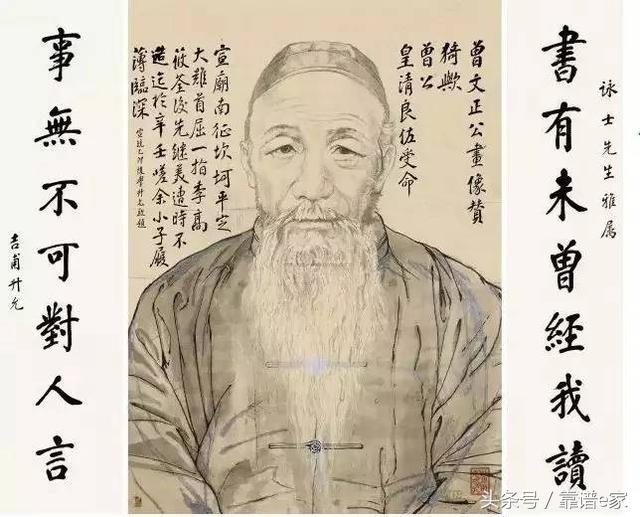 詠士先生雅属
書有未曾經我讀
曾文正公畫像贊
猗歟
曾公
皇清良佐受命
宣廟南征坎坷平定
大難首屈一指李高
筱荃後先繼美遭時不
造迄於辛壬嗟余小子履
薄臨深
宣統乙卯後學升允敬題
事無不可對人言
吉甫升允
头条号 / 靠谱e家